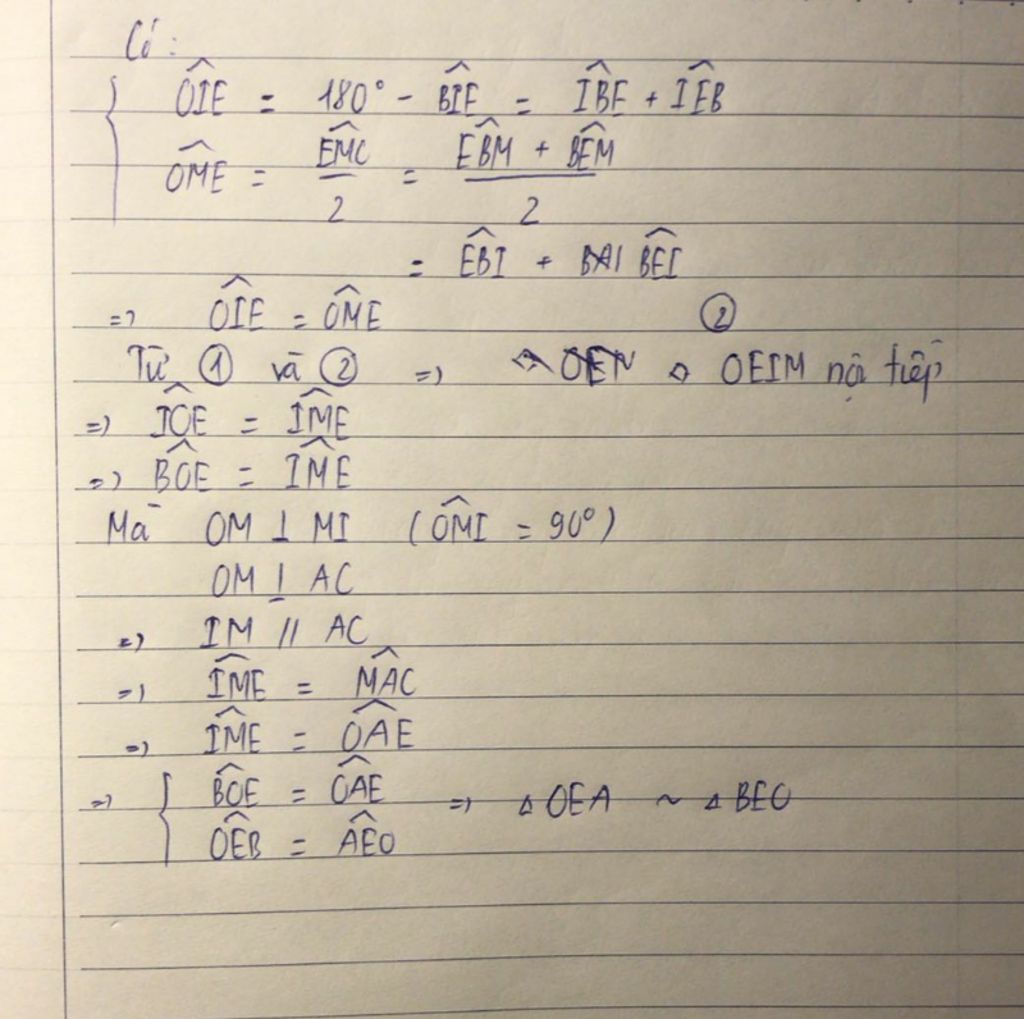 Có :
OIE = 180° - BIE = IBE + IEB
OME = EMC/2 = (EBM + BEM)/2
= EBI + BEI
=> OIE = OME ②
Từ ① và ② => ◇ OEIM nội tiếp
=> IOE = IME
=> BOE = IME
Mà OM ⊥ MI (OMI = 90°)
OM ⊥ AC
=> IM // AC
=> IME = MAC
=> IME = OAE
=> { BOE = OAE => △ OEA ~ △ BEO
OEB = AEO